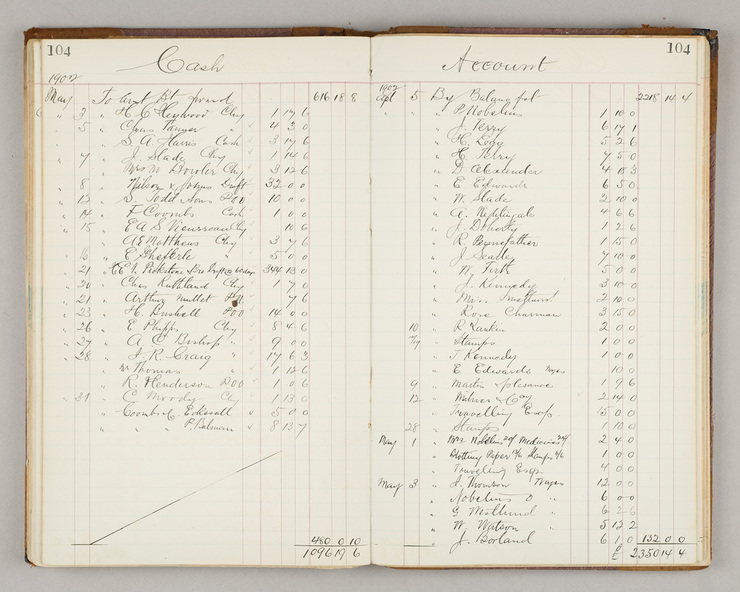 104
Cash
1902
May To amt Bt forward 616 18 8
" 3 " H C Heywood Chq 1 17 6
" 5 " Chas Tanner " 4 3 0
" S. A. Harris Cash 3 17 6
" 7 " J. Slade Chq 1 14 6
" Mrs M Dowler Chq 3 12 6
" 8 " Wilson & Johns Draft 32 0 0
" 12 " S. Todd Sons POO 10 0 0
" 14 " F Coombs Cash 1 0 0
" 15 " E A S Chq 10 6
" A E Matthews Chq 3 7 6
" 16 " E " 5 0 0
" 21 344 13 0
" 20 " Chas Ruthland Chq 1 7 0
" 21 " Arthur Mullet 7 6
" 23 " H. Bushell POO 14 0 0
" 26 " E Phipps Chq 8 4 6
" 27 " A C Bishop " 9 0 0
" 28 " J. R. Craig " 17 6 3
" W Thomas " 1 12 6
" R. Henderson POO 1 0 6
" 31 " C Moody Chq 1 13 0
" 5 0 0
" " " 8 13 7
480 0 10
1096 19 6
104
Account
1902
Apl 5 By Balance fwd 2218 14 4
" " " P. Nobelius 1 10 0
" J. Perry 6 17 1
" H. Legg 5 2 6
" H. Perry 7 5 0
" D Alexander 4 18 3
" E Edwards 6 5 0
" W. Slade 2 10 0
" A. Nightingale 4 6 6
" J. Doherty 1 2 6
" R. Pennefather 1 15 0
" J Searle 7 10 0
" W. Firth 5 0 0
" J. Kennedy 3 10 0
" Miss Smethurst 2 10 0
" Rose Chairman 3 15 0
10 " R Rankin 2 0 0
" Stamps 1 0 0
" J Kennedy 1 0 0
" E Edwards Wages 10 0
9 " Martin 1 9 6
12 " Milner & Coy 2 14 0
" Travelling Exps 15 0 0
28 " Stamps 1 10 0
May 1 " Mrs Nobelius Medicine 2 4 0
" Blotting Paper Stamps 1 0 0
" Traveling Exps 4 0 0
May 3 " J. Thomson Wages 12 0 0
" Nobelius " 6 0 0
" G Westlund " 6 2 6
" W. Watson " 5 12 2
" J. Borland 6 1 0 132 0 0
£ 2350 14 4